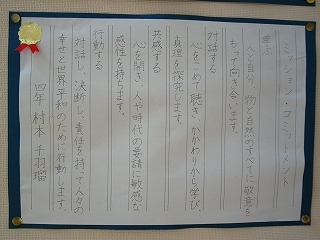 ミッション・コミットメント
尊ぶ
人と自分、物と自然のすべてに敬意を
もって向き合います。
対話する
心をこめ、聴き、かかわりから学び、
真理を探究します。
共感する
心を開き、人や時代の要請に敏感な
感性を持ちます。
行動する
対話し、決断し、責任を持って人々の
幸せと世界平和のために行動します。
四年 村本 千羽瑠